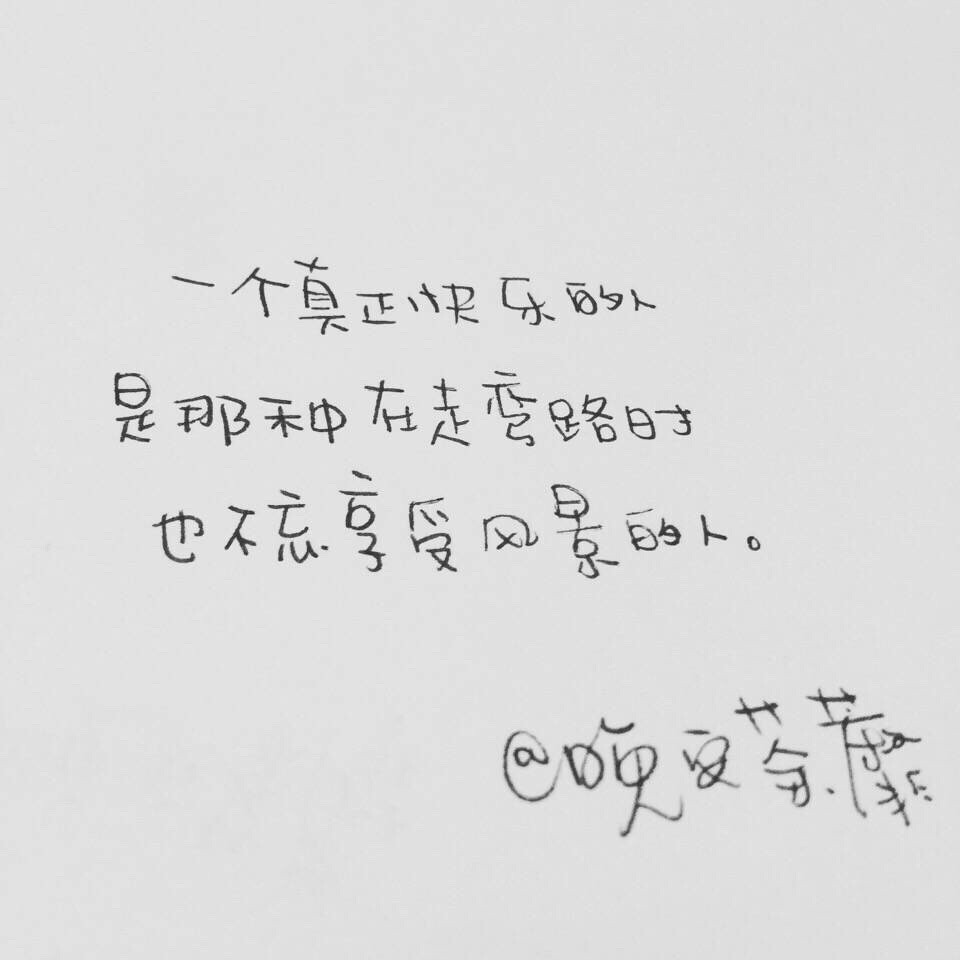 一个真正快乐的人
是那种在走弯路时
也不忘享受风景的人。
@晚安荼蘼